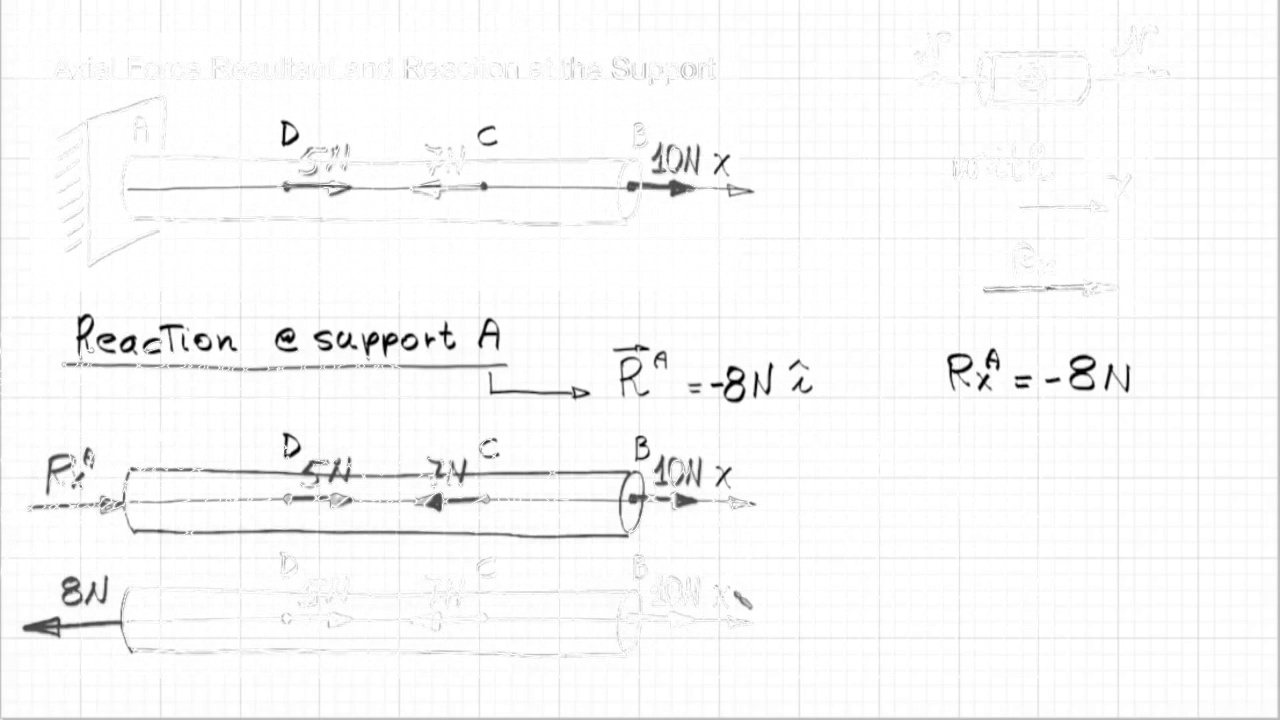 Axial Force Resultant and Reaction at the Support
N N
A D 5N 7N C B 10N x
write
x
Reaction @ support A
R^A = -8N î
Rx^A = -8N
Rx^A D 5N 7N C B 10N x
8N D 5N 7N C B 10N x